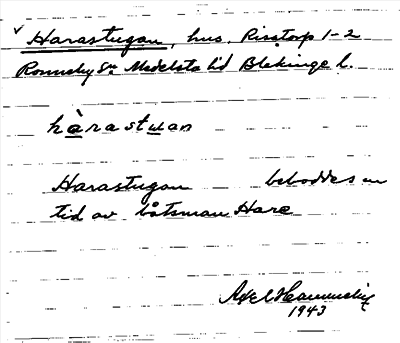 √ Harastugan, hus, Risstorp 1-2
Ronneby Sn Medelsta hd Blekinge l.
hàrastuan
Harastugan beboddes en
tid av båtsman Hare
Axel
1943